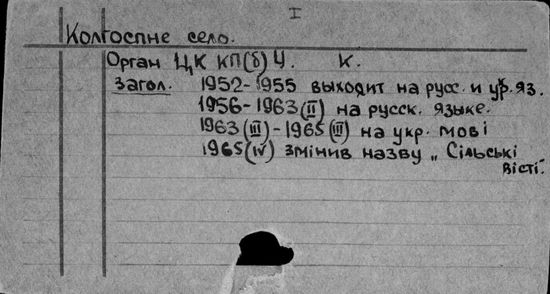 I
Колгоспне село.
Орган ЦК КП(б)У. К.
Загол. 1952-1955 выходит на русс. и укр. яз.
1956-1963(II) на русск. языке.
1963(III)-1965(III) на укр. мові
1965(IV) змінив назву „Сільські
вісті."